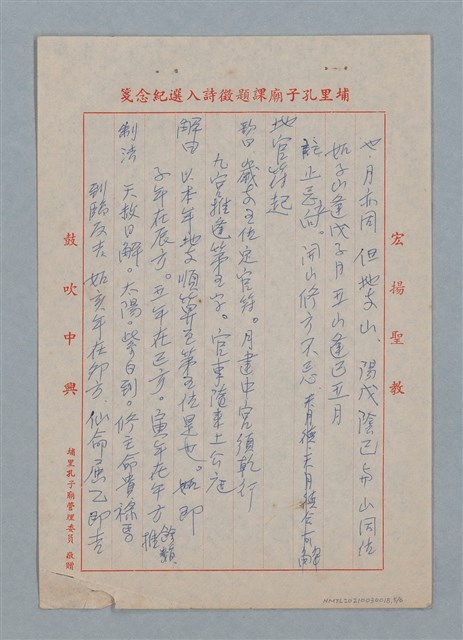 埔里孔子廟課題徵詩入選紀念箋
宏揚聖教
也。月亦同 但地支山、陽戊陰己與山同位
如子山逢戊子月 丑山逢己丑月
註 止忌向。開山修方不忌 天月德、天月德合可解
地官符起
訣曰 歲支五位定官符。月建中宮須乾行
九宮推逢第五字。官事隨来上公庭
解曰 以本年地支順算至第五位是也。如
子年在辰方。丑年在巳方。寅年在午方 餘類推
制法 天赦日解。太陽。紫白到。修主命貴祿馬
到臨反吉 如亥年在卯方、仙命屬乙即吉
鼓吹中興
埔里孔子廟管理委員 敬贈